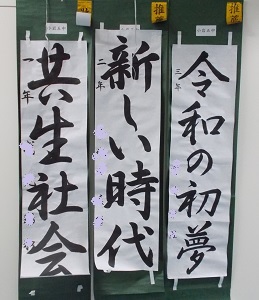 推薦
推薦
三年
令和の初夢
二年
新しい時代
一年
共生社会